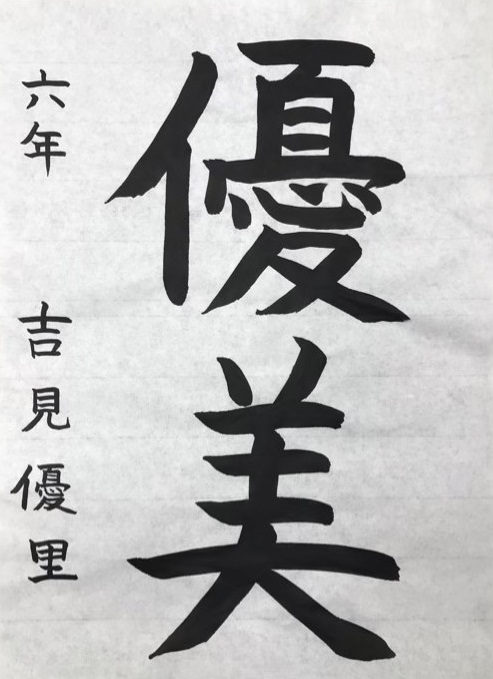 優美
六年 吉見優里